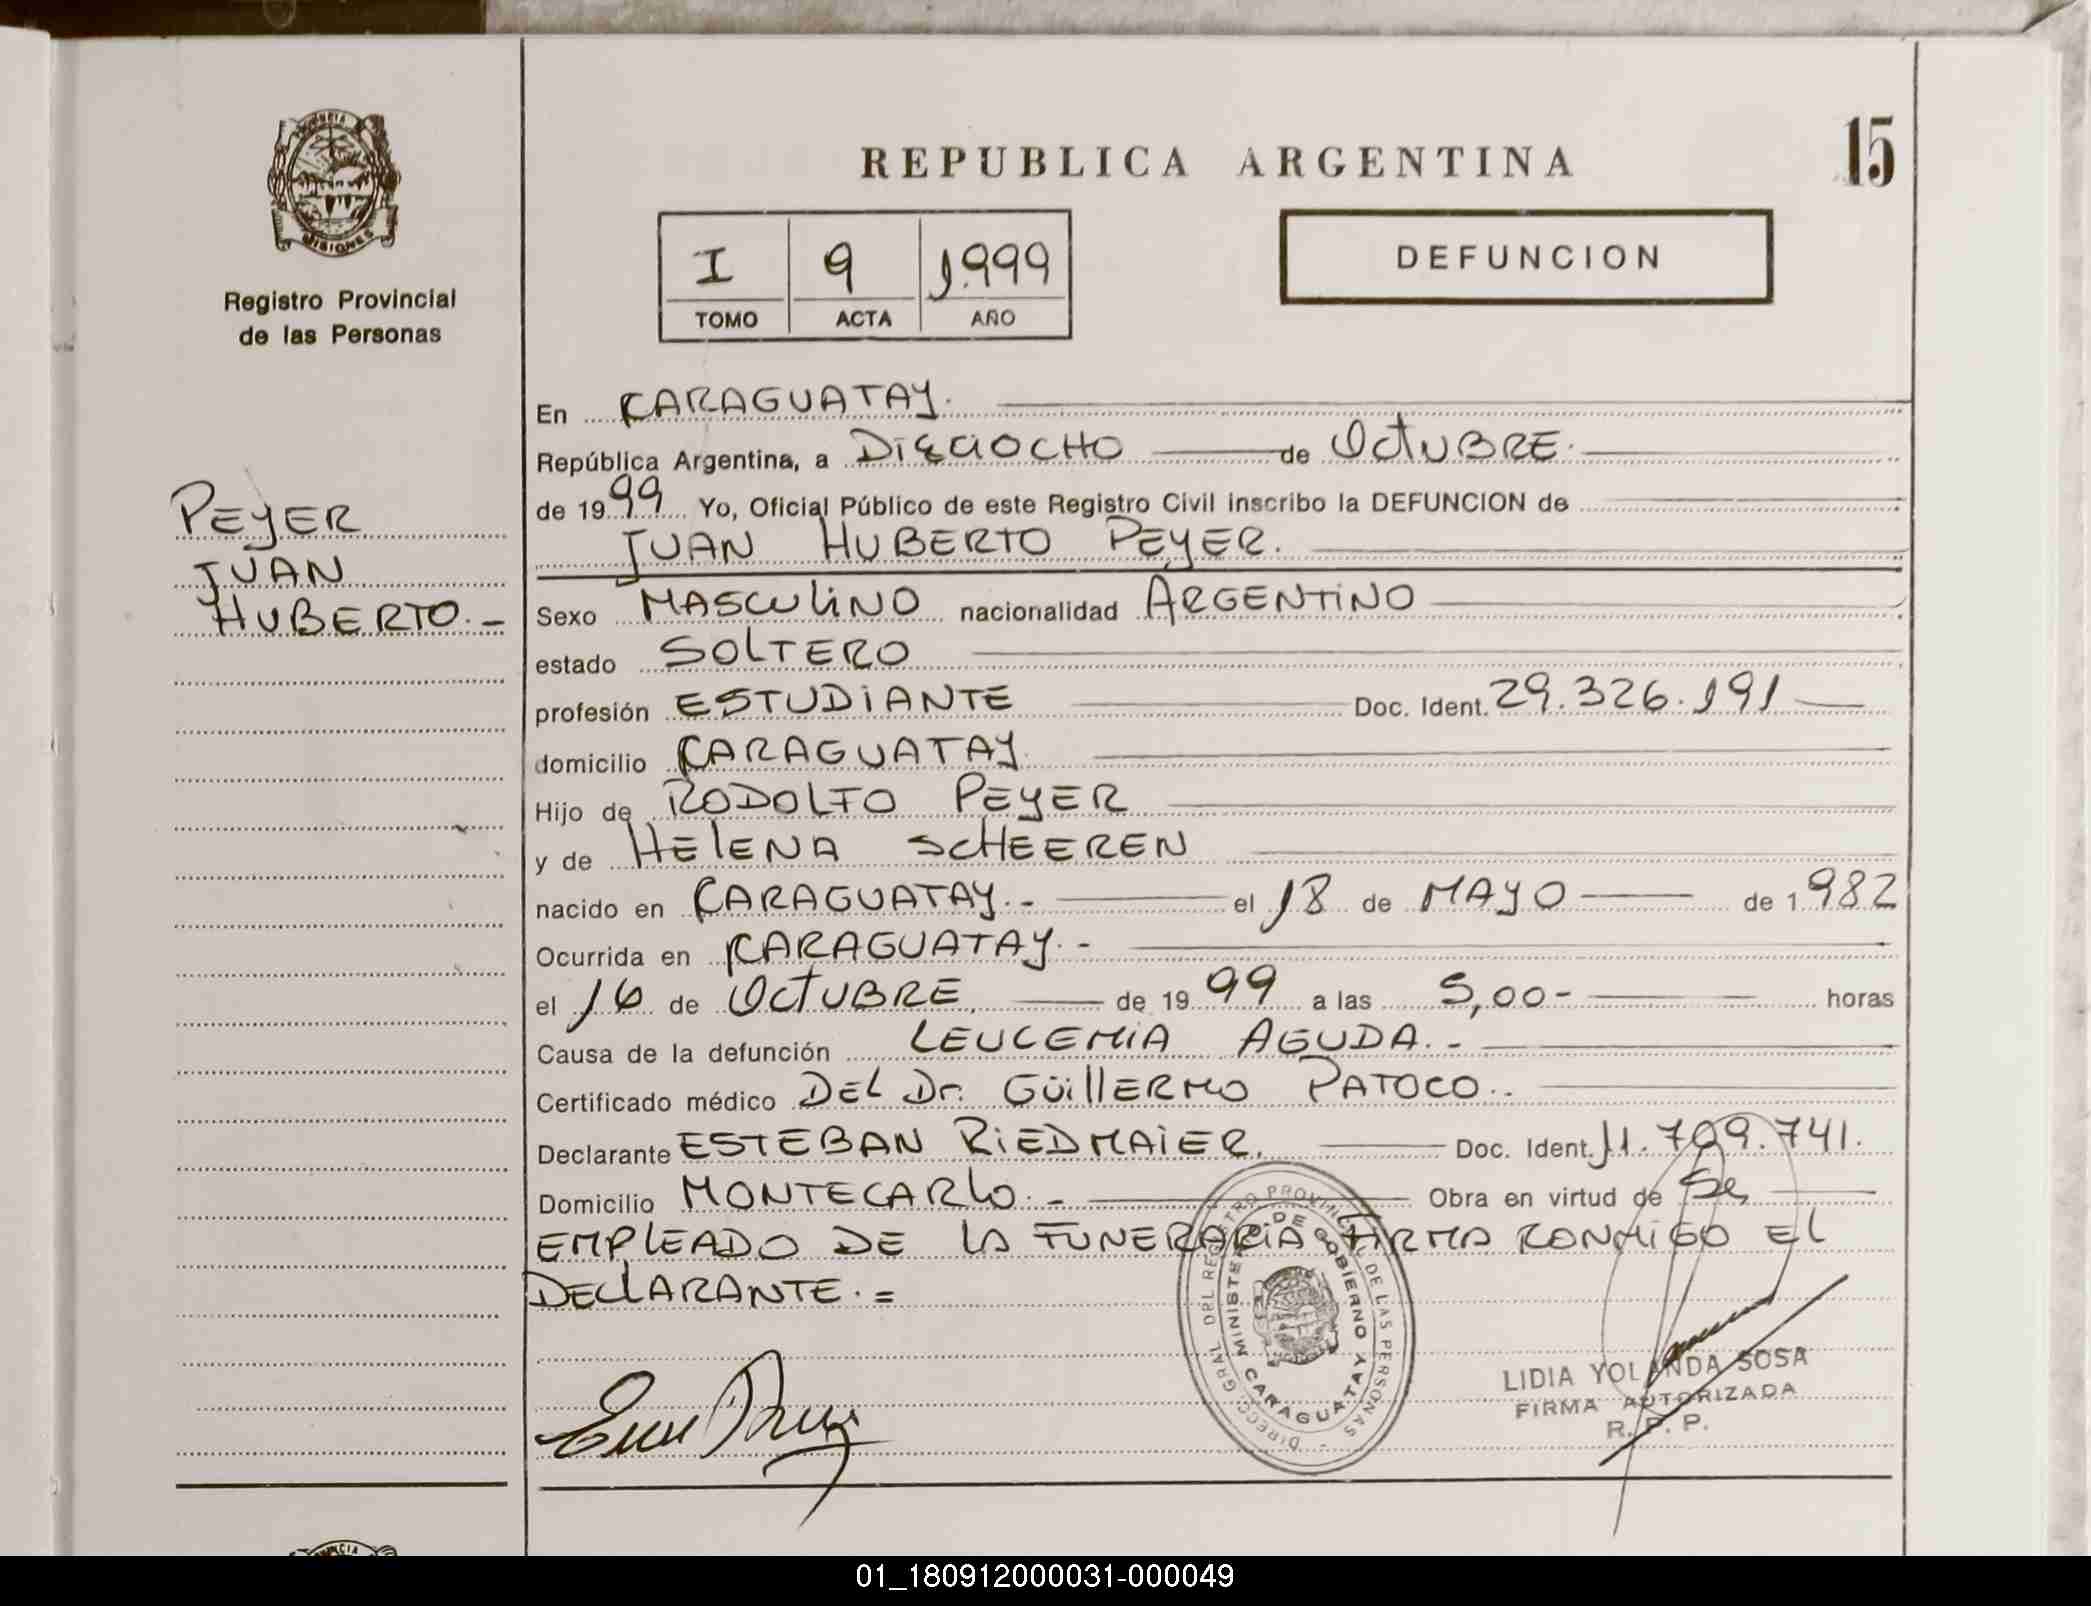 REPUBLICA ARGENTINA
15
PROVINCIA
MISIONES
Registro Provincial
de las Personas
I 9 1.999
TOMO ACTA AÑO
DEFUNCION
PEYER
JUAN
HUBERTO.-
En CARAGUATAY.
República Argentina, a DIECIOCHO de OCTUBRE.
de 1999 Yo, Oficial Público de este Registro Civil inscribo la DEFUNCION de
JUAN HUBERTO PEYER.
Sexo MASCULINO nacionalidad ARGENTINO
estado SOLTERO
profesión ESTUDIANTE Doc. Ident. 29.326.191
domicilio CARAGUATAY.
Hijo de RODOLFO PEYER
y de HELENA SCHEEREN
nacido en CARAGUATAY.- el 18 de MAYO de 1982
Ocurrida en CARAGUATAY.-
el 16 de OCTUBRE, de 1999 a las 5,00- horas
Causa de la defunción LEUCEMIA AGUDA.-
Certificado médico DEL Dr. GÜILLERMO PATOCO..
Declarante ESTEBAN RIEDMAIER. Doc. Ident. 11.709.741.
Domicilio MONTECARLO.- Obra en virtud de Se,
EMPLEADO DE LA FUNERARIA FIRMA CONMIGO EL
DECLARANTE.=
DIRECC. GRAL. DEL REGISTRO PROVINCIAL DE LAS PERSONAS
MINISTERIO DE GOBIERNO
CARAGUATAY
LIDIA YOLANDA SOSA
FIRMA AUTORIZADA
R. P. P.
PROVINCIA
01_180912000031-000049